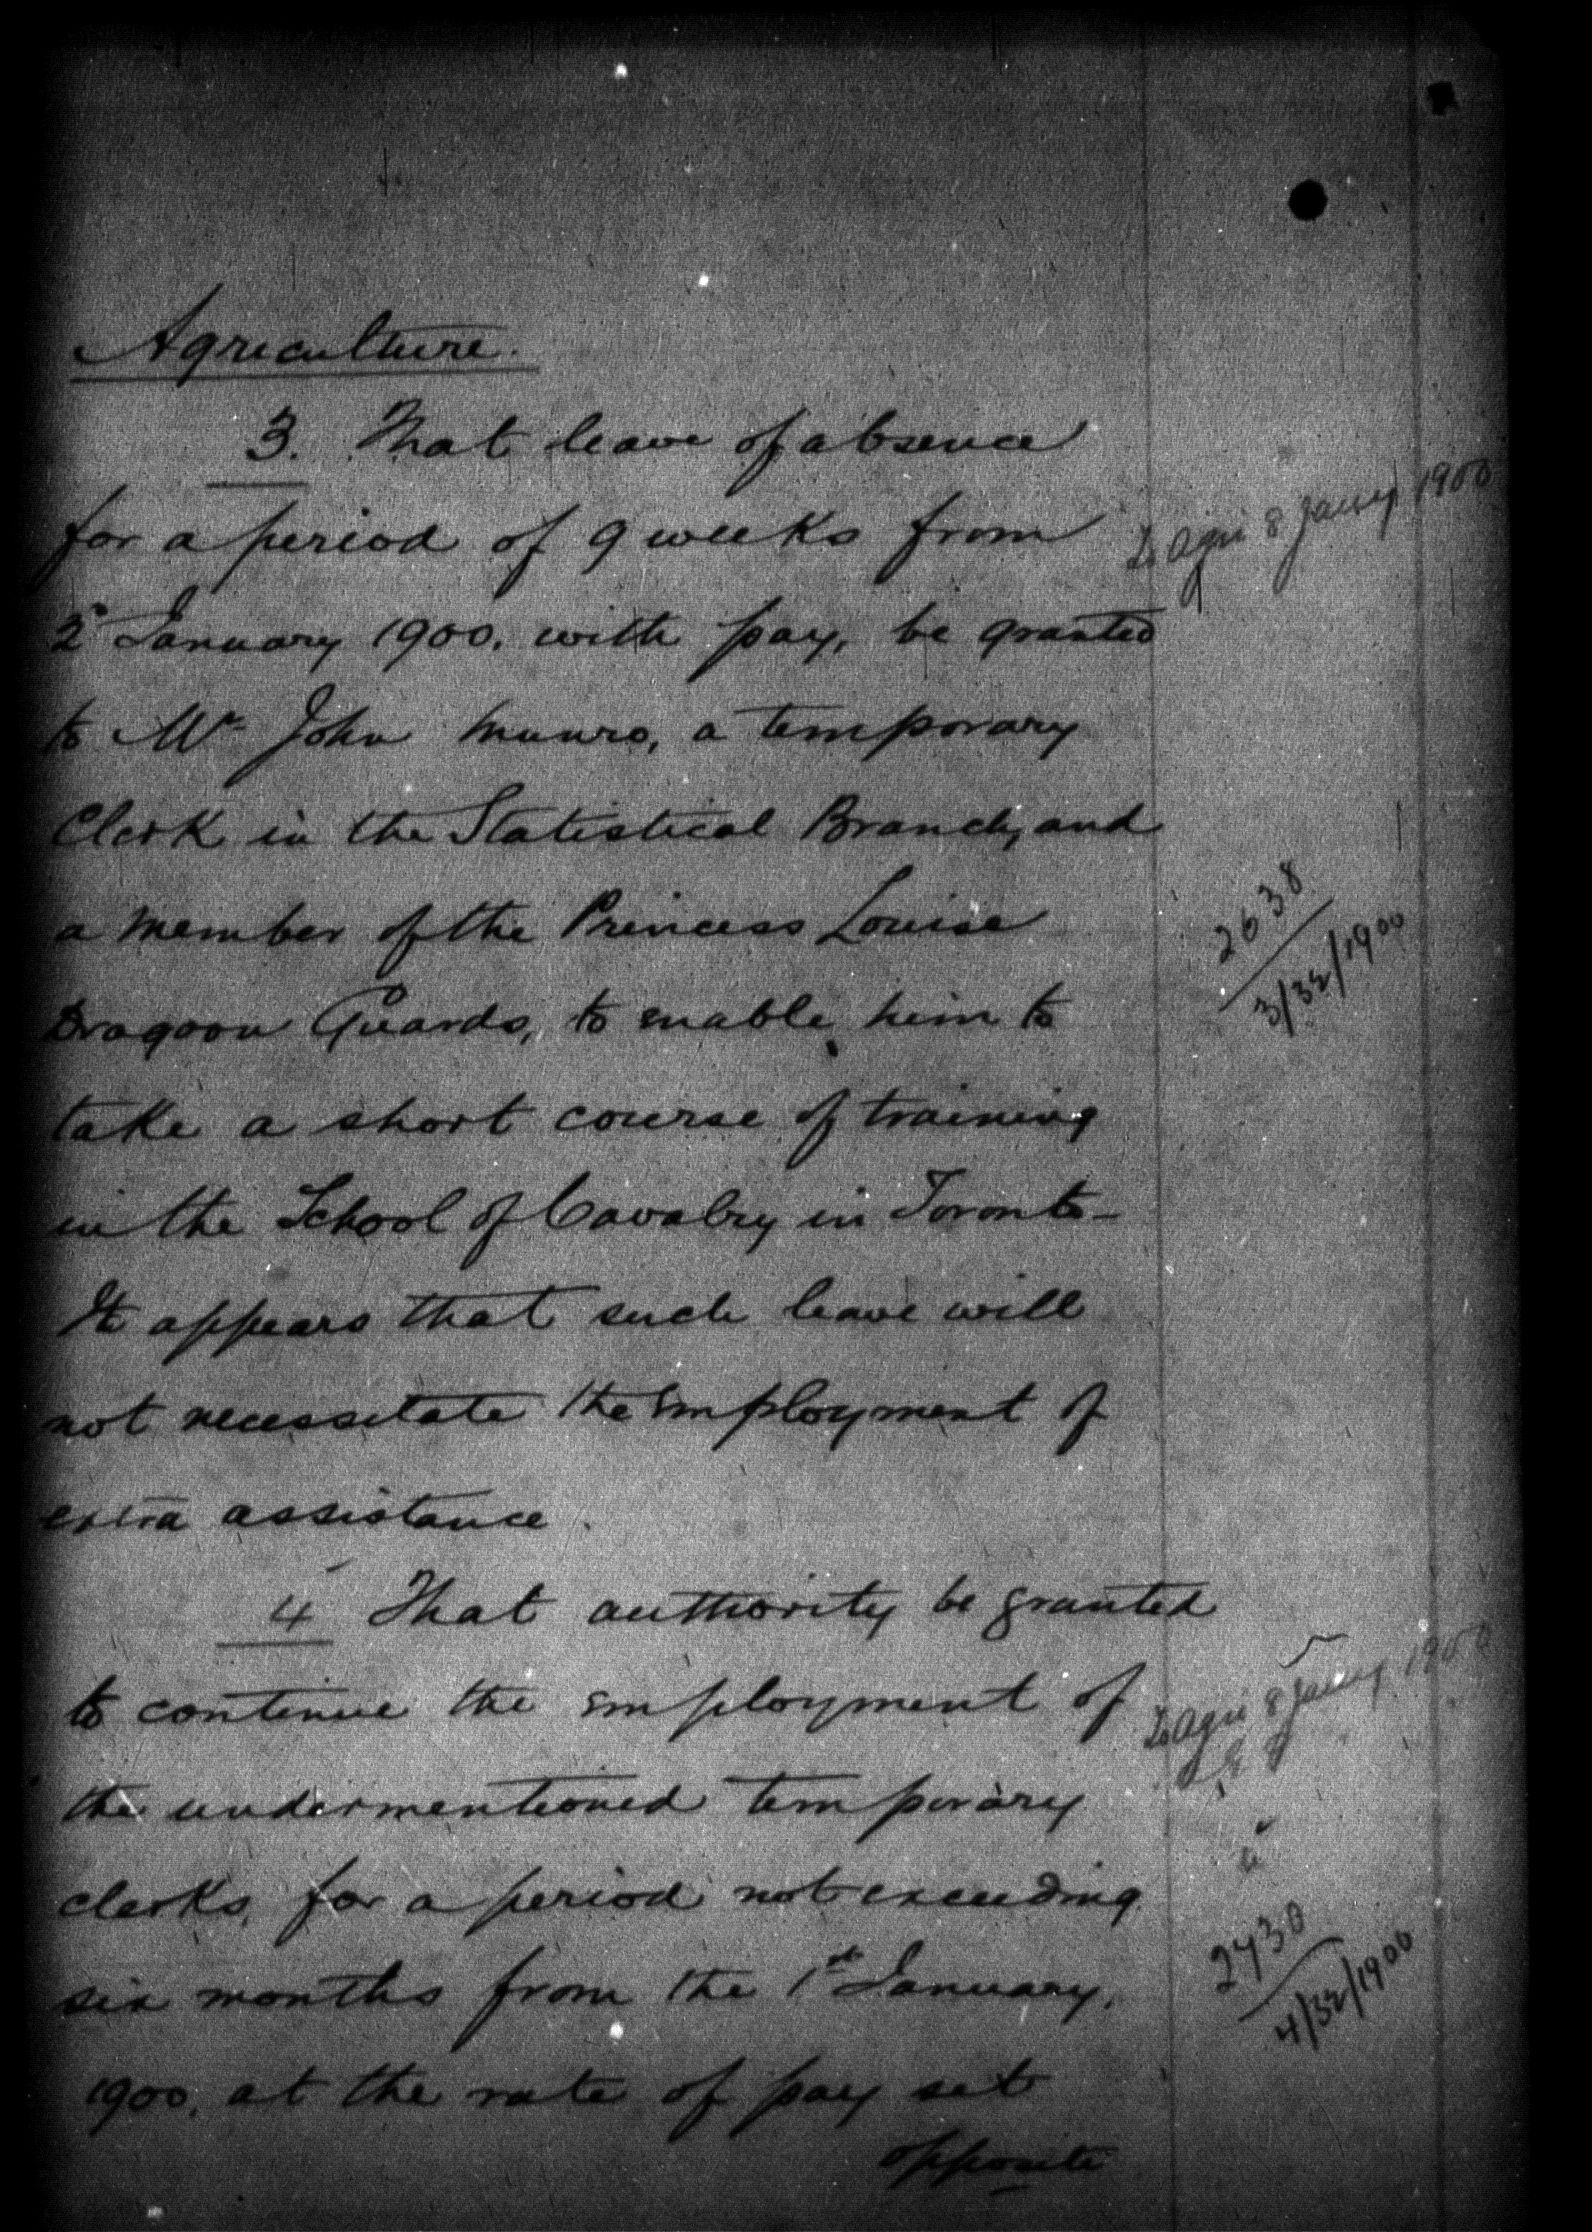 Agriculture.
3. That leave of absence
for a period of 9 weeks from
To Agri 8 Jany 1900
2d January 1900, with pay, be granted
to Mr John Munro, a temporary
Clerk in the Statistical Branch, and
a member of the Princess Louise
2638
3/32/1900
Dragoon Guards, to enable him to
take a short course of training
in the School of Cavalry in Toronto-
It appears that such leave will
not necessitate the employment of
extra assistance.
4 That authority be granted
to continue the employment of
To Agri 8 Jany 1900
the undermentioned temporary
clerks, for a period not exceeding
six months from the 1st January,
2430
4/32/1900
1900, at the rate of pay set
opposite